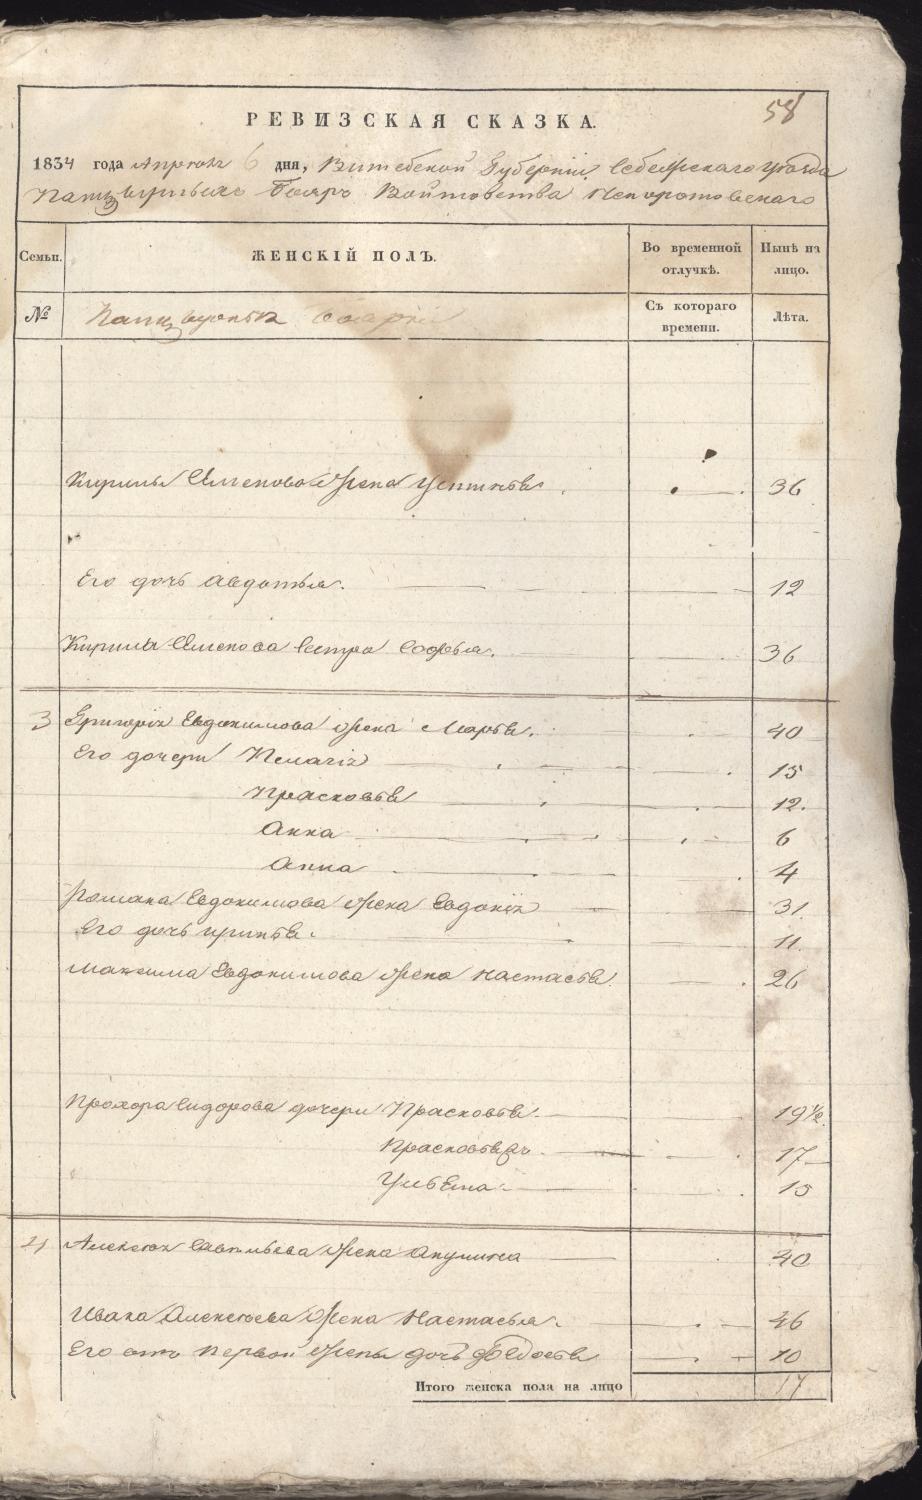 58
РЕВИЗСКАЯ СКАЗКА.
1834 года Апреля 6 дня, Витебской Губернии Себежскаго уезда
Панцырныхъ Бояръ Войтовства Непоротовскаго
Семьи. ЖЕНСКІЙ ПОЛЪ. Во временной отлучкѣ. Нынѣ на лицо.
№ Панцырныя бояри Съ котораго времени. Лѣта.
Кирилы Семенова жена Устинья. 36
Его дочь Авдотья. 12
Кирилы Семенова сестра Софья. 36
3 Григорія Евдокимова жена Марья. 40
Его дочери Пелагія 15
Прасковья 12.
Анна 6
Анна 4
Романа Евдокимова жена Евдокія 31.
Его дочь Иринья. 11.
Максима Евдокимова жена Настасья. 26
Прохора Сидорова дочери Прасковья. 19½.
Прасковья 17
Ульяна 15
4 Алексея Савельева жена Акулина 40
Ивана Алексеева жена Настасья. 46
Его отъ первой жены дочь Федосья 10
Итого женска пола на лицо 17